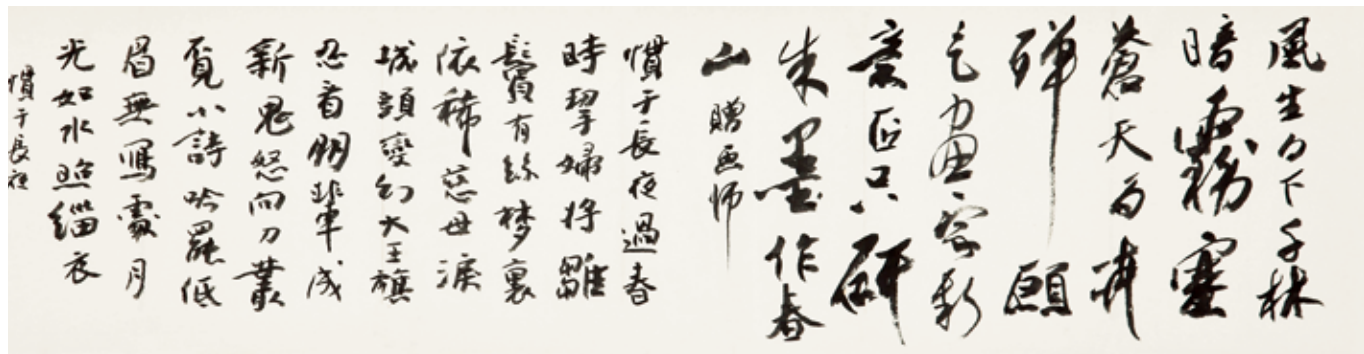 風生白下千林
暗霧塞
蒼天百卉
殫願
乞畫家新
意匠只研
朱墨作春
山 贈画師
慣于長夜過春
時挈婦將雛
鬢有絲夢裏
依稀慈母淚
城頭變幻大王旗
忍看朋輩成
新鬼怒向刀叢
覓小詩吟罷低
眉無寫處月
光如水照緇衣
慣于長夜